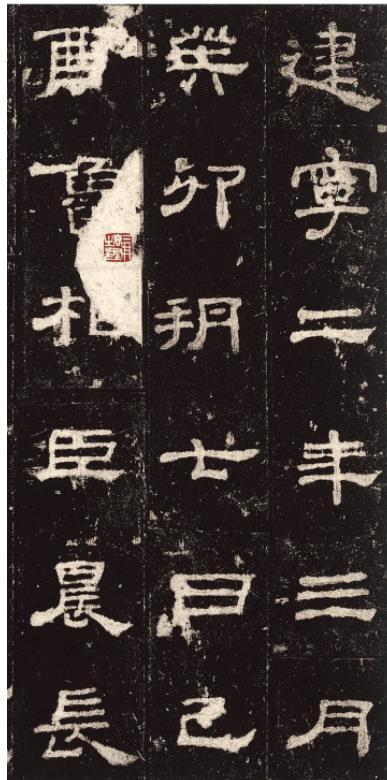 建寧二年三月
癸卯朔七日己
酉魯相臣晨長